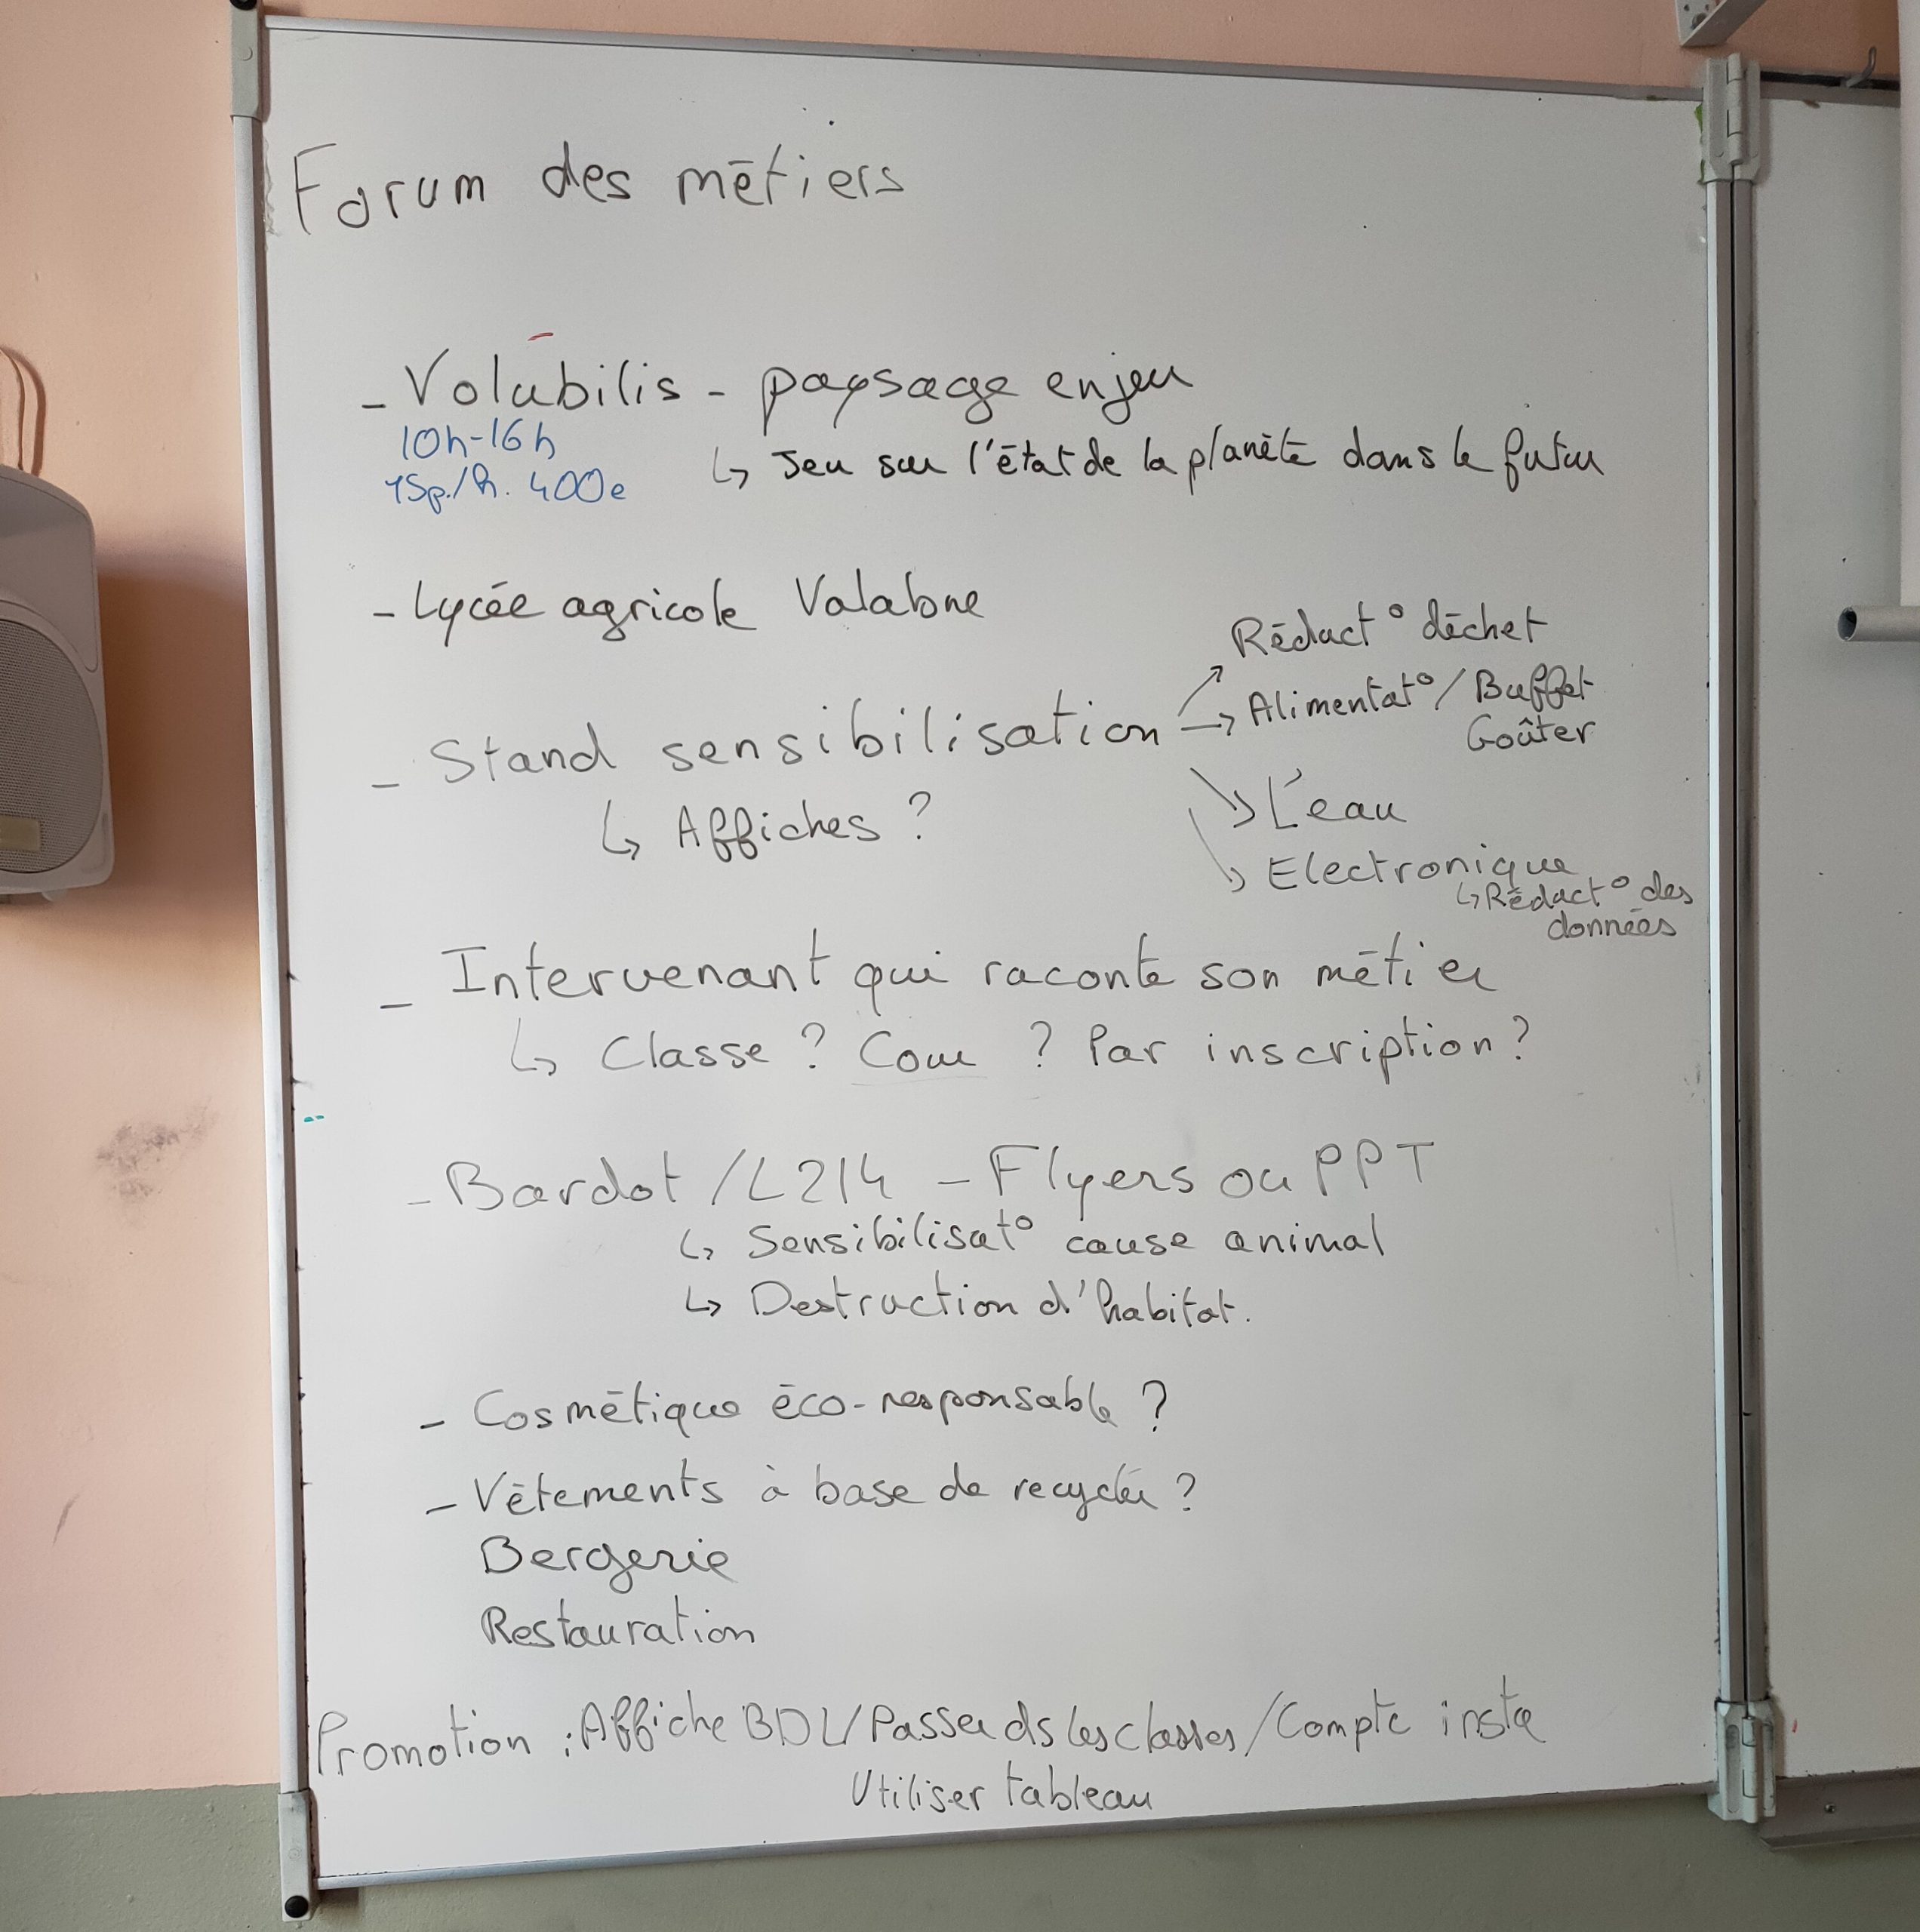 Forum des métiers
- Volubilis - paysage enjeu
10h-16h
↳ Jeu sur l'état de la planète dans le futur
15p./h. 400e
- Lycée agricole Valabne
Rédact° déchet
- Stand sensibilisation → Alimentat°/ Buffet
Goûter
↳ Affiches ?
L'eau
Electronique
↳ Rédact° des
données
- Intervenant qui raconte son métier
↳ Classe ? Cour ? Par inscription ?
- Bardot / L214 - Flyers ou PPT
↳ Sensibilisat° cause animal
↳ Destruction d'habitat.
- Cosmétique éco-responsable ?
- Vêtements à base de recyclée ?
Bergerie
Restauration
Promotion : Affiche BDL / Passer ds les classes / Compte insta
Utiliser tableau